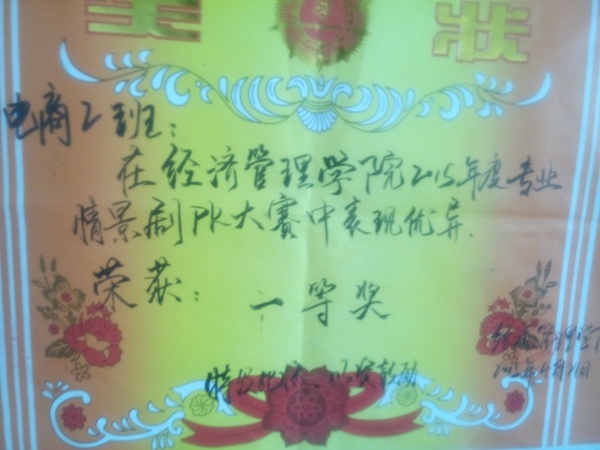 奖 状
电商2班：
在经济管理学院2015年度专业
情景剧PK大赛中表现优异.
荣获：一等奖
特发此状、以资鼓励
经济管理学